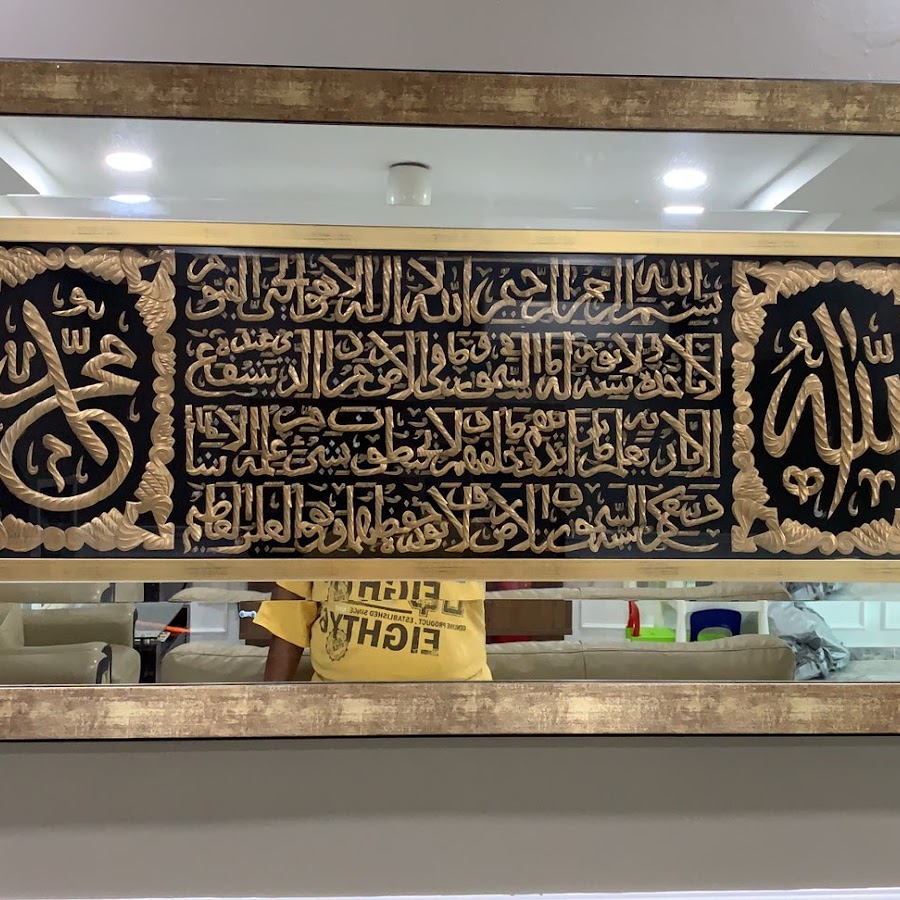 الله
بسم الله الرحمن الرحيم الله لا اله الا هو الحي القيوم
لا تأخذه سنة ولا نوم له ما في السموت وما في الارض من ذا الذي يشفع عنده
الا باذنه يعلم ما بين ايديهم وما خلفهم ولا يحيطون بشئ من علمه الا بما شاء
وسع كرسيه السموت والارض ولا يؤده حفظهما وهو العلي العظيم
محمد
EIGHT
PRODUCT, ESTABLISHED SINCE
EIGHTY6